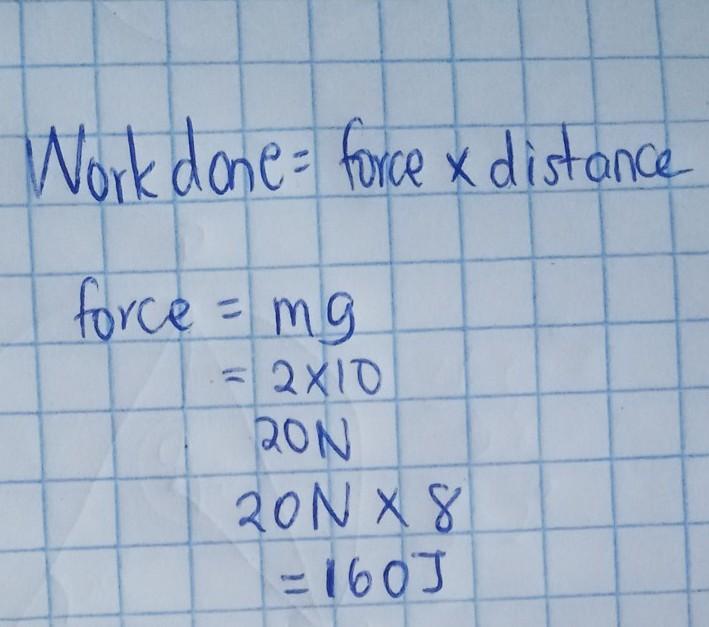 Work done = force x distance
force = mg
= 2x10
20N
20N x 8
= 160J